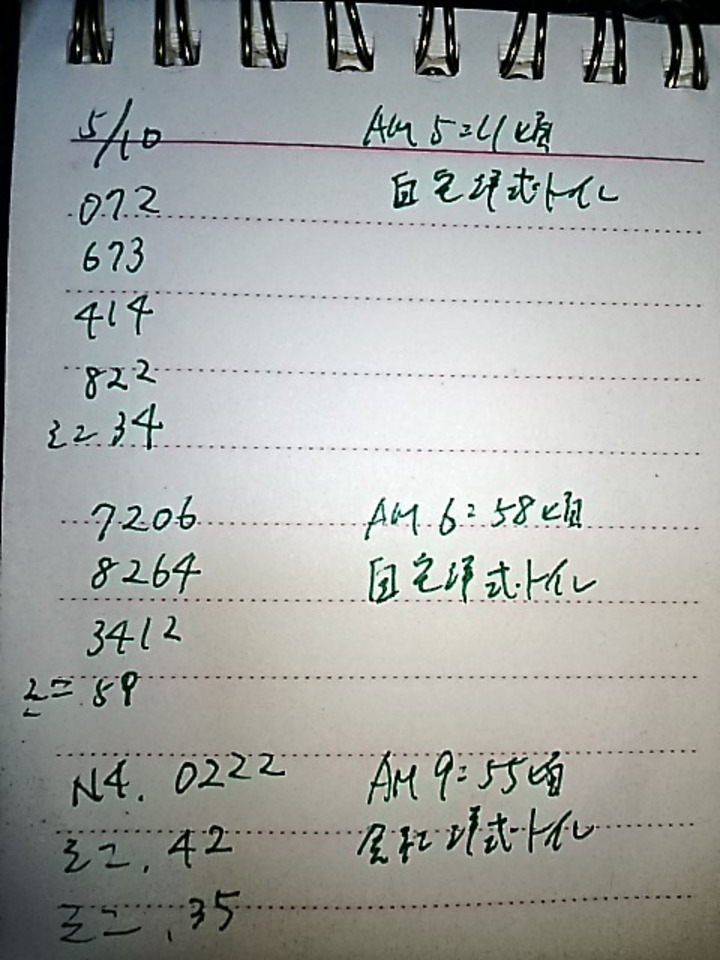 5/10 AM 5:41頃
072 自宅洋式トイレ
673
414
822
ミニ34
7206 AM 6:58頃
8264 自宅洋式トイレ
3412
ミニ 59
N4. 0222 AM 9:55頃
ミニ. 42 会社洋式トイレ
ミニ. 35